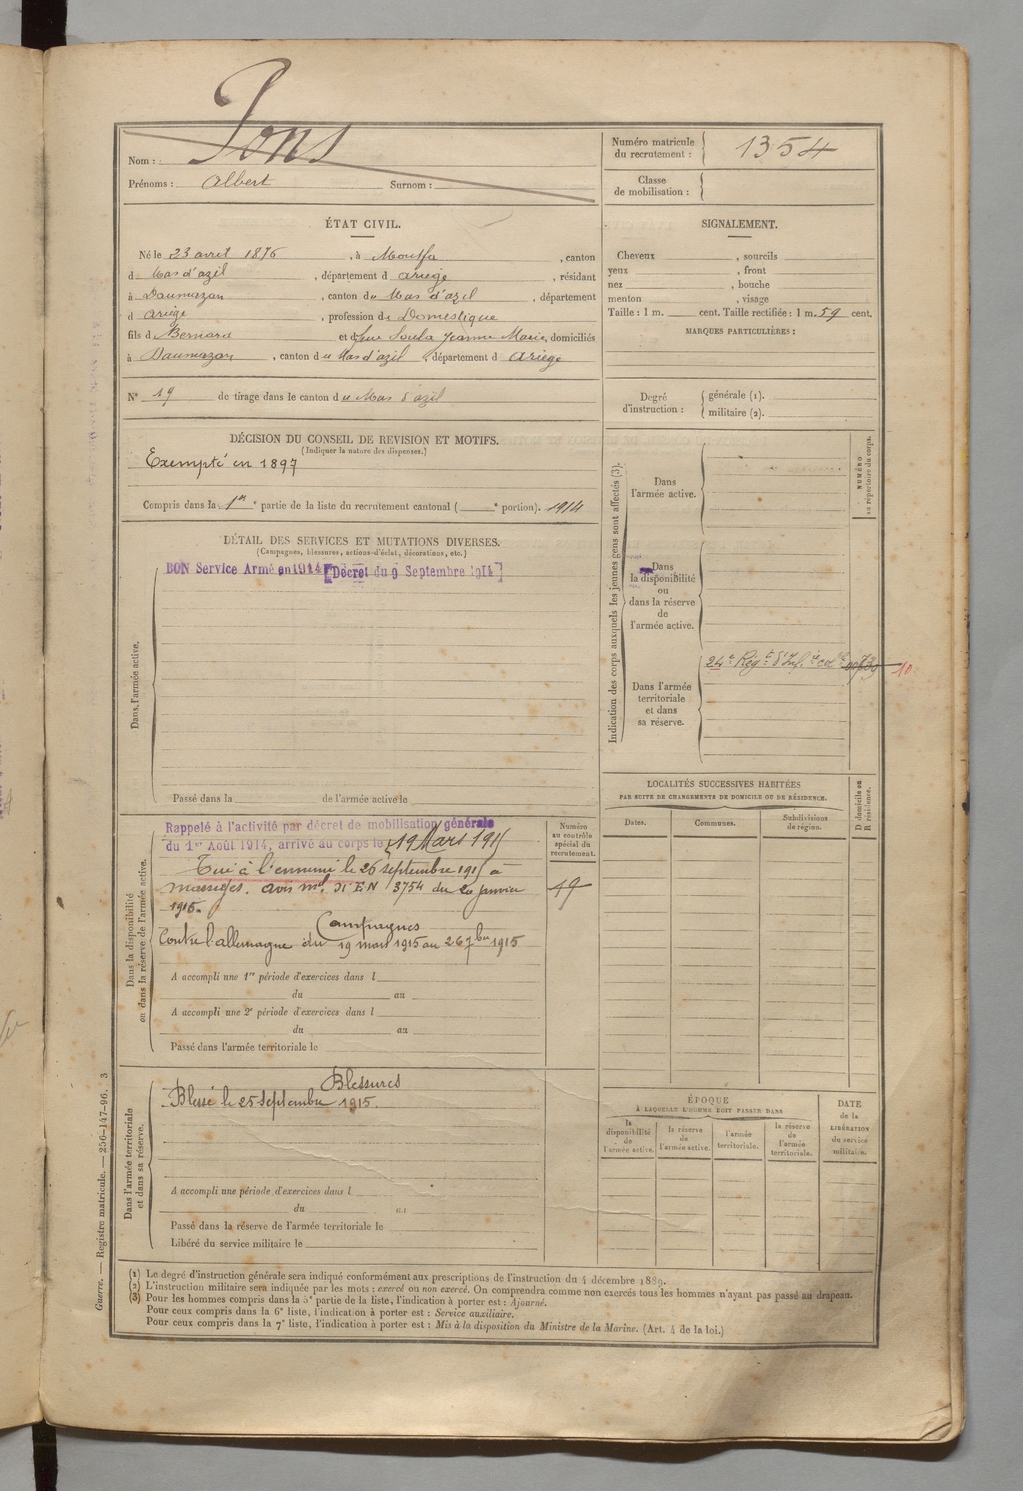 Nom : Pons
Prénoms : Albert Surnom :
Numéro matricule du recrutement : 1354
Classe de mobilisation :
ÉTAT CIVIL.
Né le 23 avril 1876, à Moutfa, canton
d Mas d'azil, département d ariège, résidant
à Daumazan, canton du Mas d'azil, département
d ariège, profession de Domestique
fils d Bernard et d feue Soula Jeanne Marie, domiciliés
à Daumazan, canton du Mas d'azil, département d ariège
N° 19 de tirage dans le canton du Mas d'azil
SIGNALEMENT.
Cheveux , sourcils
yeux , front
nez , bouche
menton , visage
Taille : 1 m. cent. Taille rectifiée : 1 m. 59 cent.
MARQUES PARTICULIÈRES :
Degré d'instruction : générale (1).
militaire (2).
DÉCISION DU CONSEIL DE REVISION ET MOTIFS.
(Indiquer la nature des dispenses.)
Exempté en 1897
Compris dans la 1re partie de la liste du recrutement cantonal ( e portion). 1914
DÉTAIL DES SERVICES ET MUTATIONS DIVERSES.
(Campagnes, blessures, actions d'éclat, décorations, etc.)
BON Service Armé en 1914 [Décret du 9 Septembre 1914]
Dans l'armée active.
Passé dans la de l'armée active le
Indication des corps auxquels les jeunes gens sont affectés (3).
NUMÉRO au répertoire du corps.
Dans l'armée active.
Dans la disponibilité ou dans la réserve de l'armée active.
Dans l'armée territoriale et dans sa réserve.
24e Régt d'Inf. ie col le
10.
LOCALITÉS SUCCESSIVES HABITÉES
PAR SUITE DE CHANGEMENTS DE DOMICILE OU DE RÉSIDENCE.
Dates.
Communes.
Subdivisions de région.
D domicile ou R résidence.
Dans la disponibilité ou dans la réserve de l'armée active.
Rappelé à l'activité par décret de mobilisation générale
du 1er Août 1914, arrivé au corps le 19 Mars 1915
Tué à l'ennemi le 26 septembre 1915 à
massiges. avis mel N EN 3754 du 20 janvier
1915.
Campagnes
Contre l'allemagne du 19 mars 1915 au 26 7bre 1915
A accompli une 1re période d'exercices dans l
du au
A accompli une 2e période d'exercices dans l
du au
Passé dans l'armée territoriale le
Numéro au contrôle spécial du recrutement.
19
Dans l'armée territoriale et dans sa réserve.
Blessures
Blessé le 25 septembre 1915.
A accompli une période d'exercices dans l
du au
Passé dans la réserve de l'armée territoriale le
Libéré du service militaire le
ÉPOQUE
À LAQUELLE L'HOMME DOIT PASSER DANS
la disponibilité de l'armée active.
la réserve de l'armée active.
l'armée territoriale.
la réserve de l'armée territoriale.
DATE de la LIBÉRATION du service militaire.
(1) Le degré d'instruction générale sera indiqué conformément aux prescriptions de l'instruction du 4 décembre 1889.
(2) L'instruction militaire sera indiquée par les mots : exercé ou non exercé. On comprendra comme non exercés tous les hommes n'ayant pas passé au drapeau.
(3) Pour les hommes compris dans la 5e partie de la liste, l'indication à porter est : Ajourné.
Pour ceux compris dans la 6e liste, l'indication à porter est : Service auxiliaire.
Pour ceux compris dans la 7e liste, l'indication à porter est : Mis à la disposition du Ministre de la Marine. (Art. 4 de la loi.)
Guerre. — Registre matricule. — 256-147-96. 3